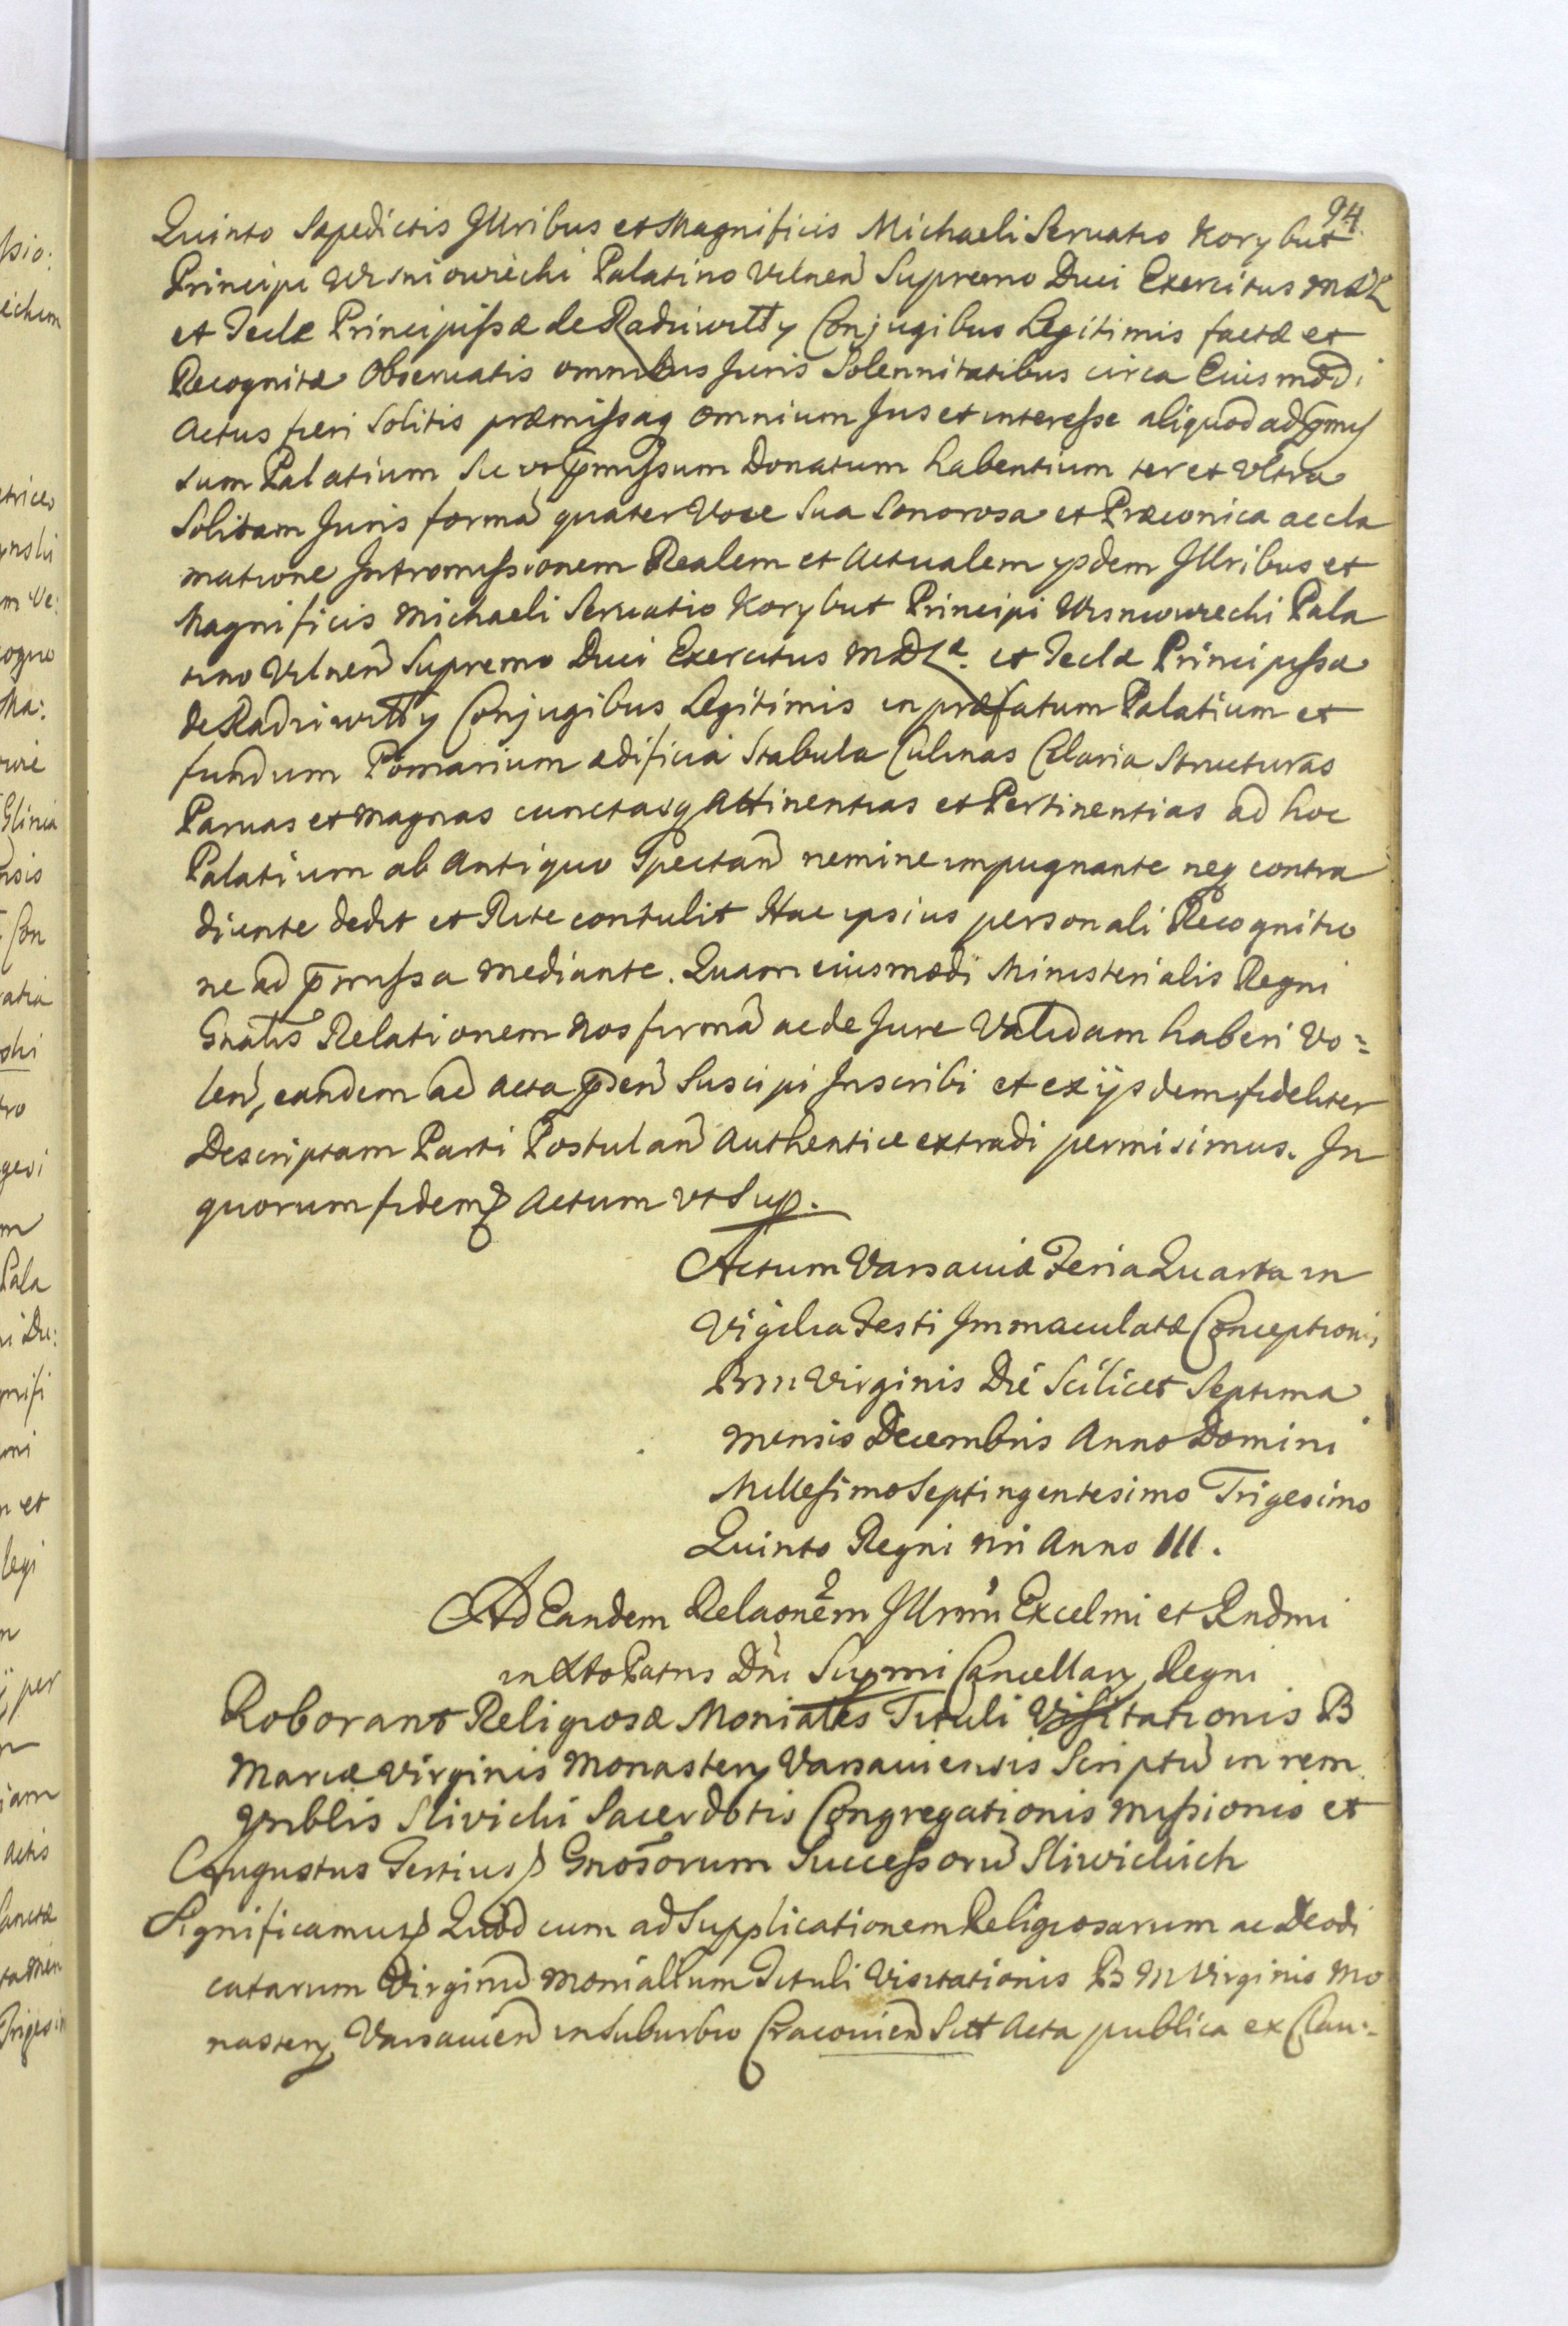 94.
Quinto Sæpedictis Jllribus et Magnificis Michaeli Servatio Korybut
Principi Wisniowiecki Palatino Vilneñ Supremo Duci Exercitus MDL
et Teclæ Principissæ de Radziwiłły Conjugibus Legitimis factæ et
Recognitæ Observatis omnibus Juris Solennitatibus circa Eiusmodi
Actus fieri Solitis præmissaq omnium Jus et interesse aliquod ad p̄mis
sum Palatium Sic vt p̄missum Donatum habentium ter et Ultra
Solitam Juris formã quater Voce Sua Sonorosa et Præconica accla
matione Jntromissionem Realem et Actualem ysdem Jllribus et
Magnificis Michaeli Servatio Korybut Principi Wisniowiecki Pala
tino Vilneñ Supremo Duci Exercitus MDLæ. et Teclæ Principissæ
de Radziwiłły Conjugibus Legitimis in præfatum Palatium et
fundum Pomarium ædificia Stabula Culinas Celaria Structuras
Parvas et Magnas cunctasq Attinentias et Pertinentias ad hoc
Palatium ab Antiquo Spectañ nemine impugnante neq contra
dicente dedit et Rite contulit Hac ipsius personali Recognitio
ne ad p̄missa mediante. Quam eiusmodi Ministerialis Regni
Gnalis Relationem Nos firmã ac de Jure Validam haberi Vo=
leñ, eandem ad Acta p̄señ Suscipi Jnscribi et ex ijsdem fideliter
Descriptam Parti Postulañ Authentice extradi permisimus. Jn
quorum fidem Actum vt Sup.
Actum Varsaviæ Feria Quarta in
Vigilia Festi Jmmaculatæ Conceptionis
BM Virginis Die Scilicet Septima
Mensis Decembris Anno Domini
Millesimo Septingentesimo Trigesimo
Quinto Regni nri Anno III.
Ad Eandem Relaonem Jllrmi Excelmi et Rndmi
in Xto Patris Dñi Supmi Cancellarij Regni
Roborant Religiosæ Moniales Tituli Visitationis B
Mariæ Virginis Monasterij Varsaviensis Scriptũ in rem
Sliwicki Sacerdotis Congregationis Missionis et
Augustus Tertius Gnosorum Successorũ Sliwickich
Significamus Quod cum ad Supplicationem Religiosarum ac Deodi
catarum Virginũ Monialium Tituli Visitationis B M Virginis Mo
nasterij Varsavieñ in Suburbio Cracovieñ Acta publica ex Clau=